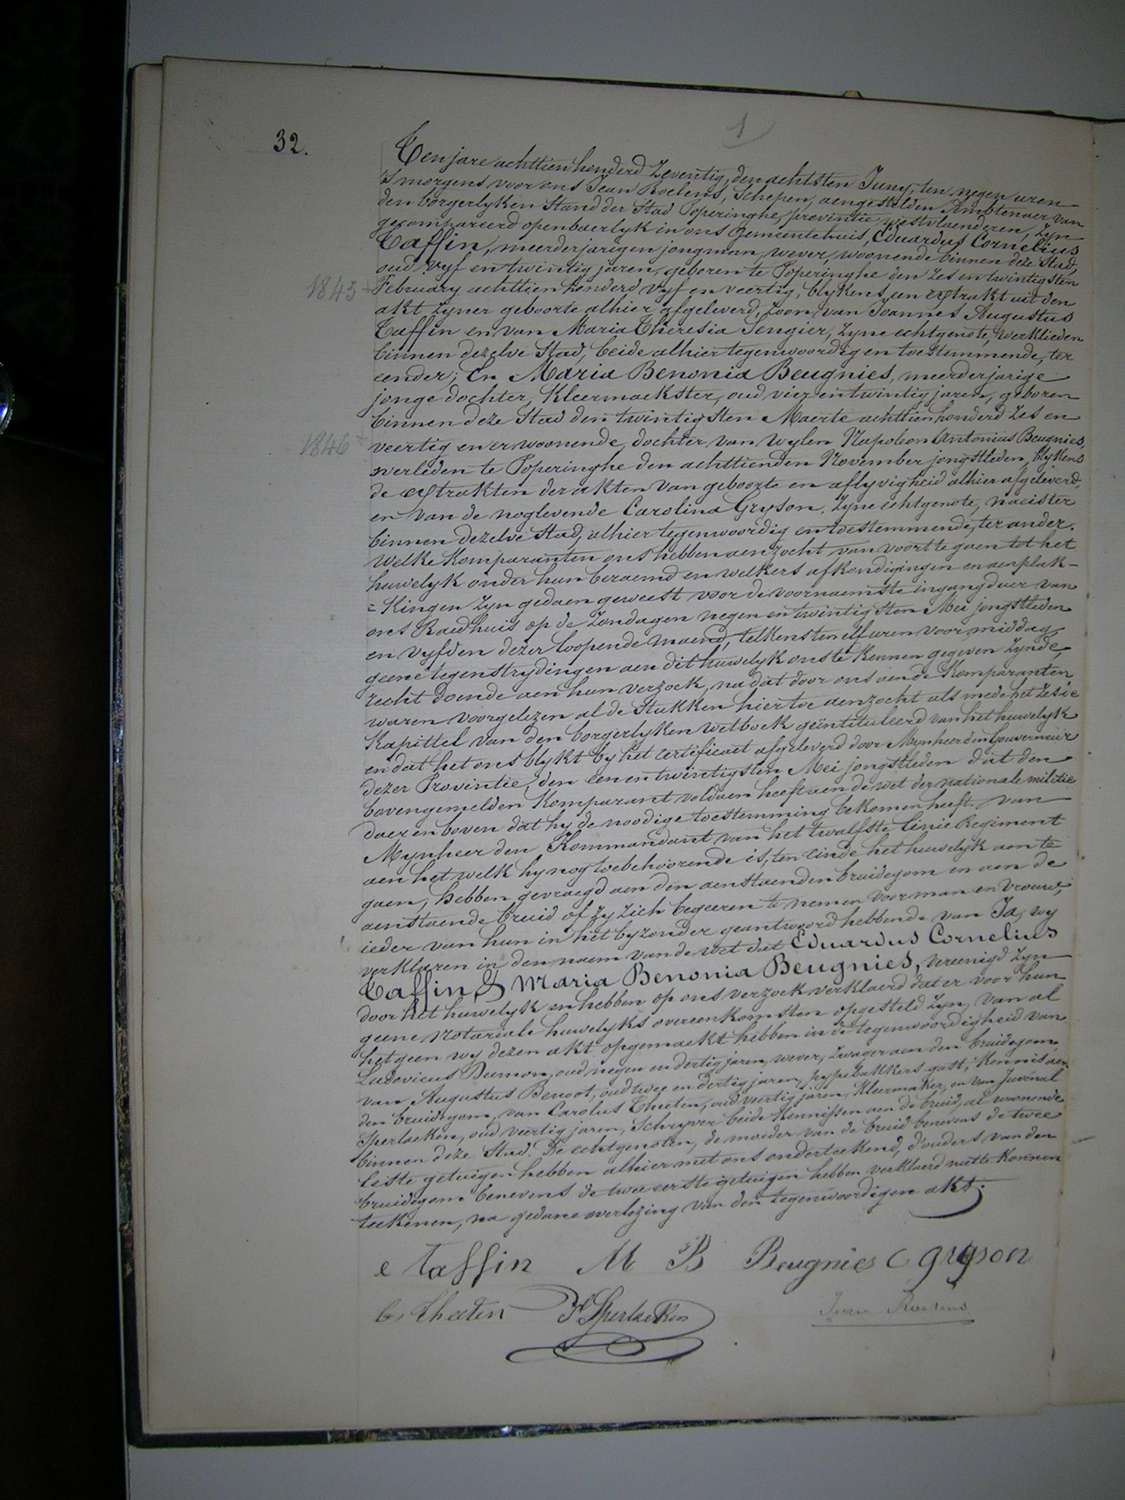 1
32.
Ten jare achttien honderd Zeventig, den achtsten Juny, ten negen uren
's morgens voor ons Jean Roelens, Schepen, aengestelden Ambtenaer van
den borgerlyken Stand der Stad Poperinghe, provintie Westvlaenderen, Zyn
gecompareerd openbaerlyk in ons Gemeentehuis, Eduardus Cornelius
Taffin, meerderjarigen jongman, wever, woonende binnen deze Stad,
oud vyf en twintig jaren, geboren te Poperinghe den Zes en twintigsten
1845 + February achttien honderd vyf en veertig, blykens een extrakt uit den
akt Zyner geboorte alhier afgeleverd, Zoon van Joannes Augustus
Taffin en van Maria Theresia Tengier, Zyne echtgenote, werklieden
binnen dezelve Stad, beide alhier tegenwoordig en toestemmende, ter
eender; En Maria Benonia Beugnies, meerderjarige
jonge dochter, Kleermaekster, oud vier en twintig jaren, geboren
binnen deze Stad den twintigsten Maerte achttien honderd Zes en
1846 + veertig en er woonende, dochter van wylen Napoleon Antonius Beugnies,
overleden te Poperinghe den achttienden November jongstleden, blykens
de extrakten der akten van geboorte en aflyvigheid alhier afgeleverd,
en van de noglevende Carolina Gryson, Zyne echtgenote, naeister
binnen dezelve Stad, alhier tegenwoordig en toestemmende, ter ander.
Welke Komparanten ons hebben aenzocht van voort te gaen tot het
huwelyk onder hun beraemd en welkers afkondigingen en aenplak-
= Kingen Zyn gedaen geweest voor de voornaemste ingangdeur van
ons Raedhuis op de Zondagen negen en twintigsten Mei jongstleden
en vyfden dezer loopende maend, telkens ten elf uren voormiddag
geene tegenstrydingen aen dit huwelyk ons te kennen gegeven Zynde,
recht doende aen hun verzoek, na dat door ons aen de Komparanten
waren voorgelezen al de Stukken hiertoe aenzocht als mede het Zesde
Kapittel van den borgerlyken wetboek geïntituleerd van het huwelyk
en dat het ons blykt by het certificaet afgeleverd door Mynheer den Gouverneur
dezer Provintie, den een en twintigsten Mei jongstleden dat den
bovengemelden Komparant voldaen heeft aen de wet der nationale militie
daer en boven dat hy de noodige toestemming bekomen heeft van
Mynheer den Kommandant van het twalfste Linie Regiment
aen het welk hy nog toebehoorende is, ten einde het huwelyk aen te
gaen, hebben gevraegd aen den aenstaenden bruidegom en aen de
aenstaende bruid of Zy Zich begeeren te nemen voor man en vrouw,
ieder van hun in het byzonder geantwoord hebbende van Ja, wy
verklaren in den naem van de wet dat Eduardus Cornelius
Taffin & Maria Benonia Beugnies, vereenigd Zyn
door het huwelyk en hebben op ons verzoek verklaerd dat er voor hun
geene notariale huwelyks overeenkomsten opgesteld Zyn, van al
het geen wy dezen akt opgemaekt hebben in de tegenwoordigheid van
Ludovicus Dumon, oud negen en dertig jaren, wever, Zwager aen den bruidegom,
van Augustus Benoot, oud twee en dertig jaren, Kennis aen
den bruidegom, van Carolus Theeten, oud veertig jaren, Kleermaker, en van Juvénal
Sperlaeken, oud veertig jaren, Schryver beide Kennissen aen de bruid, al woonende
binnen deze Stad. De echtgenoten, de moeder van de bruid benevens de twee
leste getuigen hebben alhier met ons onderteekend, d'ouders van den
bruidegom benevens de twee eerste getuigen hebben verklaerd niet te konnen
teekenen, na gedane overlezing van den tegenwoordigen akt.
e taffin M B Beugnies C gryson
Cs Theeten J Sperlaeken Jean Roelens